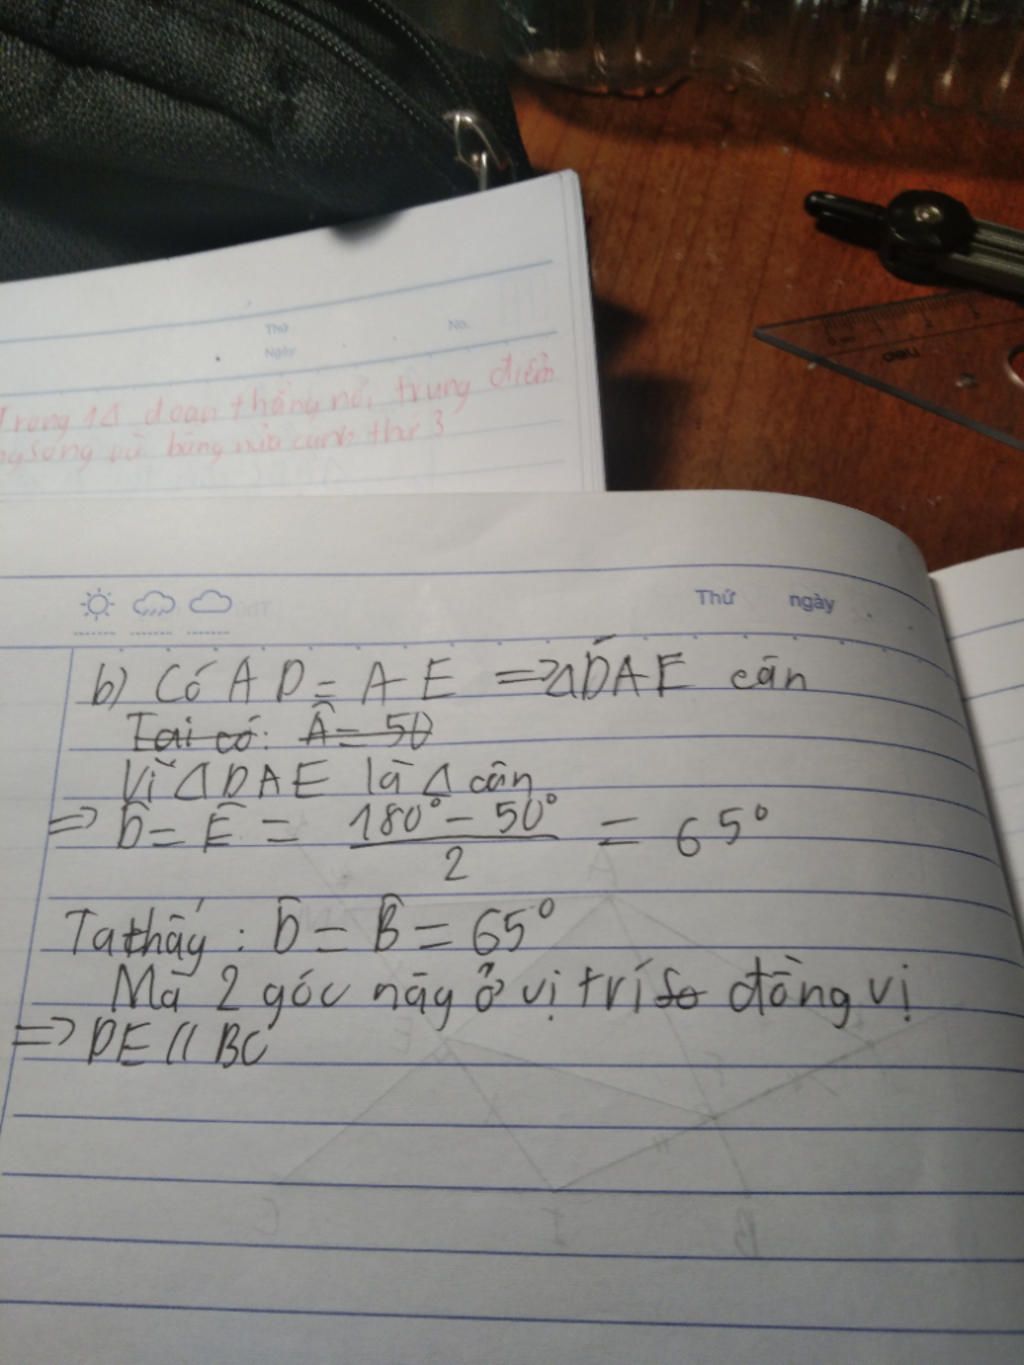 Thứ No.
Ngày
Trong 1Δ đoạn thẳng nối trung điểm
bằng nửa cạnh thứ 3
Thứ ngày
b) Có AD = AE => ΔDAE cân
Tại có: Â = 50
Vì ΔDAE là Δ cân
=> D̂ = Ê = (180° - 50°)/2 = 65°
Ta thấy: D̂ = B̂ = 65°
Mà 2 góc này ở vị trí so đồng vị
=> DE // BC